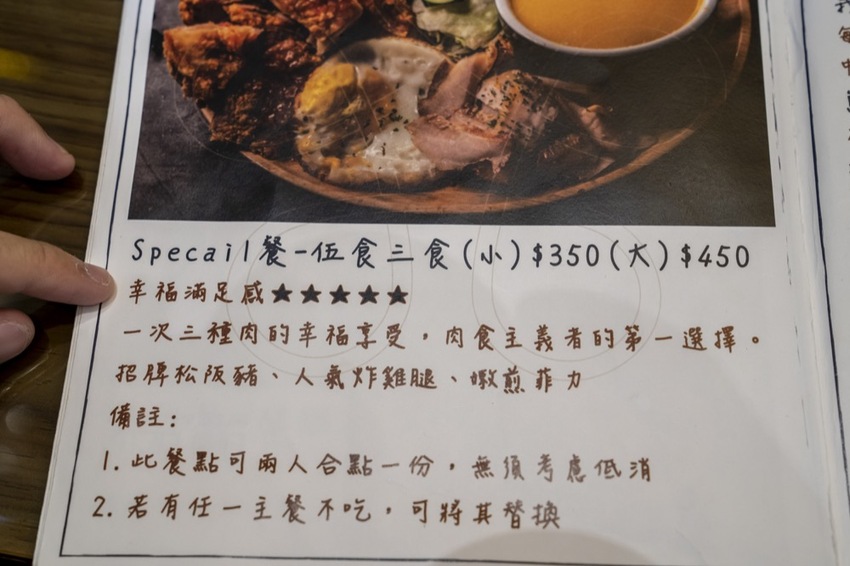 Specail餐-伍食三食(小)$350(大)$450
幸福滿足感★★★★★
一次三種肉的幸福享受，肉食主義者的第一選擇。
招牌松阪豬、人氣炸雞腿、嫩煎菲力
備註:
1. 此餐點可兩人合點一份，無須考慮低消
2. 若有任一主餐不吃，可將其替換